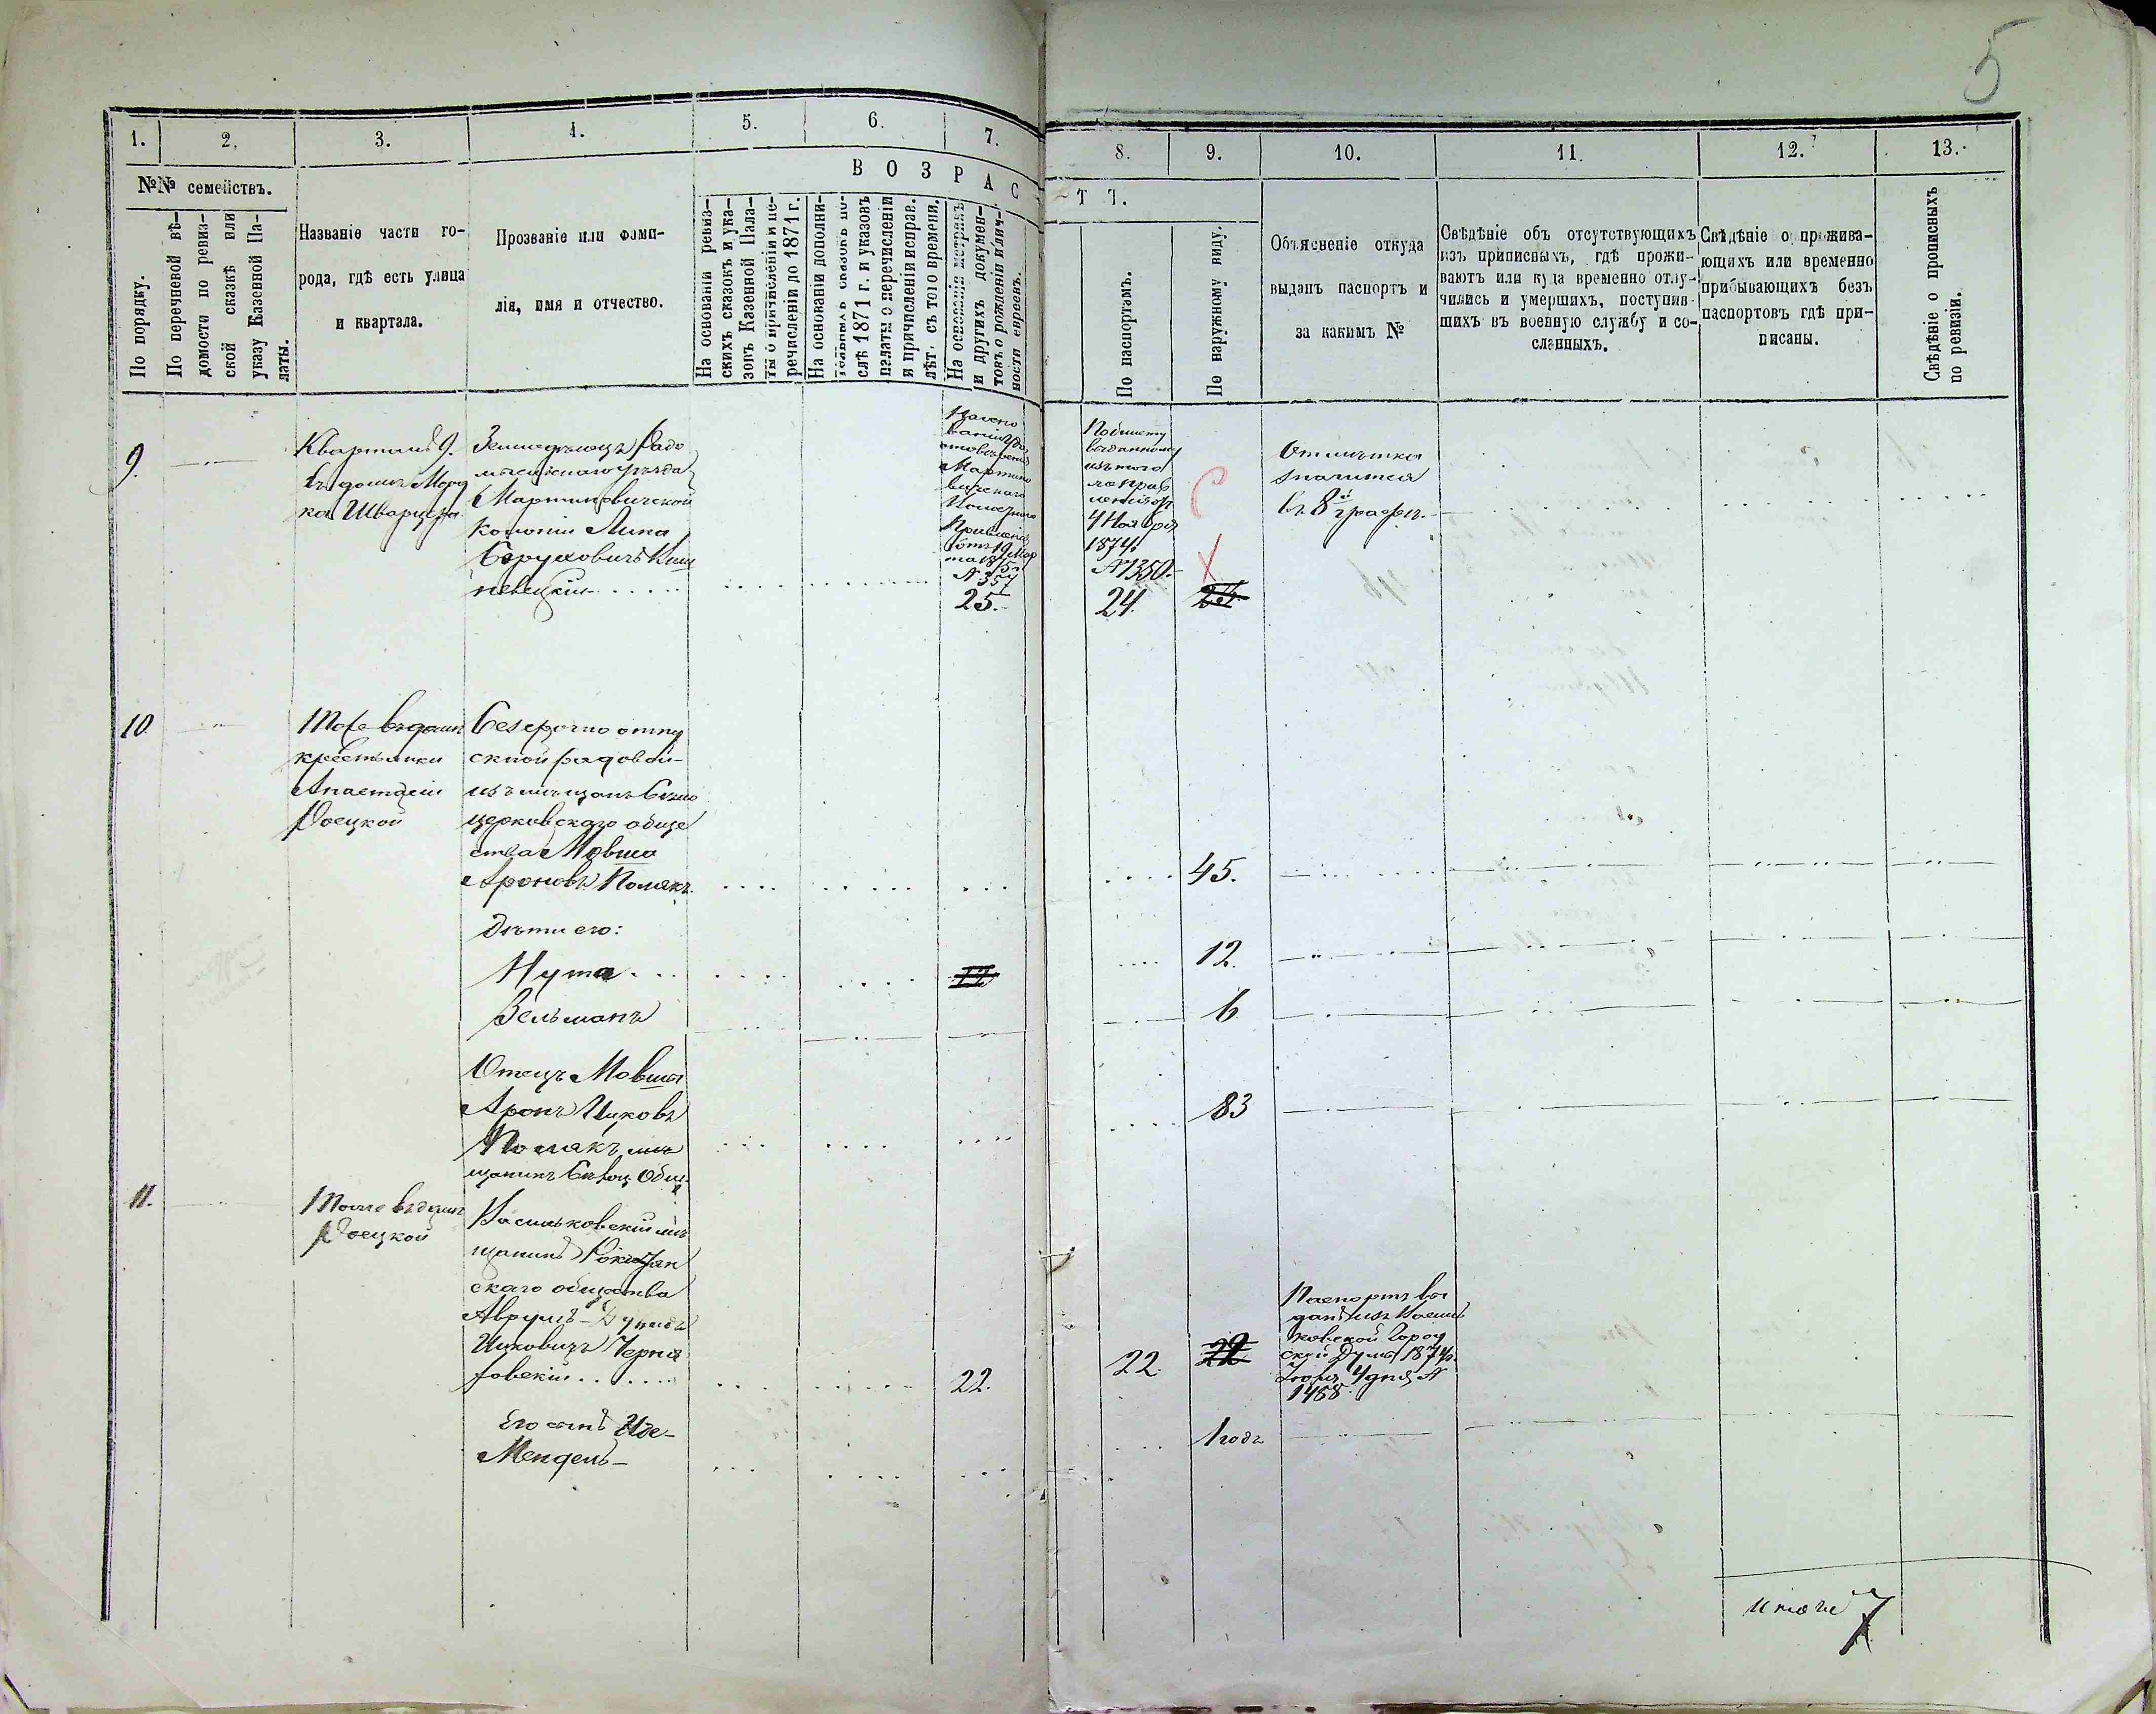 5
1.
2.
3.
4.
5.
6.
7.
8.
9.
10.
11.
12.
13.
№№ семействъ.
По порядку.
По перечневой вѣ-
домости по ревиз-
ской сказкѣ или
указу Казенной Па-
латы.
Названіе части го-
рода, гдѣ есть улица
и квартала.
Прозваніе или фами-
лія, имя и отчество.
ВОЗРАС
ТЪ.
На основаніи ревиз-
скихъ сказокъ и ука-
зовъ Казенной Пала-
ты о причисленіи и пе-
речисленіи до 1871 г.
На основаніи дополни-
слѣ 1871 г. и указовъ
палаты о перечисленіи
и причисленіи исправ.
лѣт. съ того времени.
На основаніи метрикъ
и другихъ докумен-
товъ о рожденіи и лич-
ности евреевъ.
По паспортамъ.
По наружному виду.
Объясненіе откуда
выданъ паспортъ и
за какимъ №
Свѣдѣніе объ отсутствующихъ
изъ приписныхъ, гдѣ прожи-
ваютъ или куда временно отлу-
чились и умершихъ, поступив-
шихъ въ военную службу и со-
сланныхъ.
Свѣдѣніе о прожива-
ющихъ или временно
прибывающихъ безъ
паспортовъ гдѣ при-
писаны.
Свѣдѣніе о прописныхъ
по ревизіи.
9.
Кварталъ 9.
въ домѣ Морд
ка Шварцера
Земледѣлецъ Радо
мысльскаго уѣзда
Мартиновичской
колоніи Лика
Беруховичъ Киш
невецкій
Марти
новичскаго
Правленія
отъ 19 Мар
та 1875 г.
№ 357
25.
По билету
выданному
изъ того
же Прав
ленія отъ
4 Ноября
1874 г.
№ 1350.
24.
Отмѣтка
значится
въ 8й графѣ.
10.
Тоже въ домѣ
крестьянки
Анастасіи
Роецкой
Безсрочно отпу
скной рядовой
изъ мѣщанъ Бѣло
церковскаго обще
ства Мовша
Ароновъ Полякъ
45.
Дѣти его:
Нута
12
12.
Зельманъ
6
Отецъ Мовши
Аронъ Ицковъ
Полякъ мѣ
щанинъ Бѣлоц. Общ.
83
11.
Тоже въ домѣ
Роецкой
Васильковскій мѣ
щанинъ Рокитян
скаго общества
Аврумъ-Дувидъ
Ицковичъ Черня
ховскій
22.
22
22
Паспортъ вы
данъ изъ Василь
ковской Город
ской Думы 1874 г.
4 дня №
1458
Его сынъ Изе-
Мендель
1 годъ
Итого 7